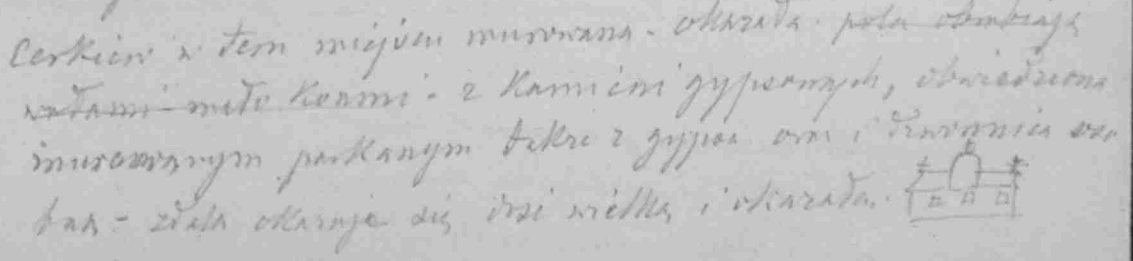 Cerkiew w tem miejscu murowana - okazała pola obrabiają
wołami mało końmi - z kamieni gypsowych, obwiedziona
murowanym parkanym także z gypsu oraz i dzwonnica
zdala okazuje się wsi wielką i okazałą.